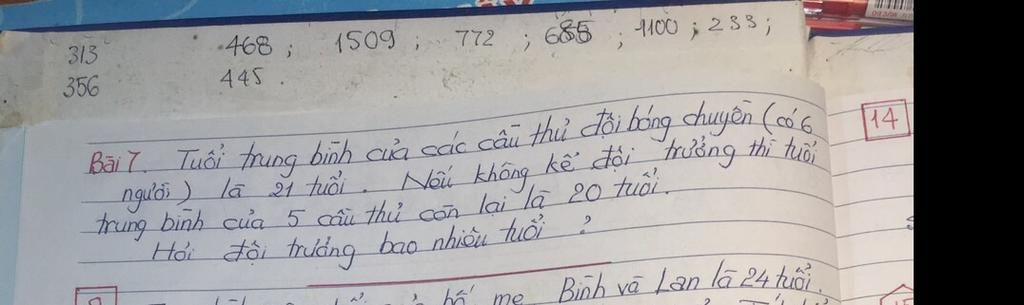 313 468 ; 1509 ; 772 ; 685 ; 1100 ; 233 ;
356 445 .
Bài 7. Tuổi trung bình của các cầu thủ đội bóng chuyền (có 6
người) là 21 tuổi. Nếu không kể đội trưởng thì tuổi
trung bình của 5 cầu thủ còn lại là 20 tuổi.
Hỏi đội trưởng bao nhiêu tuổi ?
14
bố mẹ Bình và Lan là 24 tuổi.